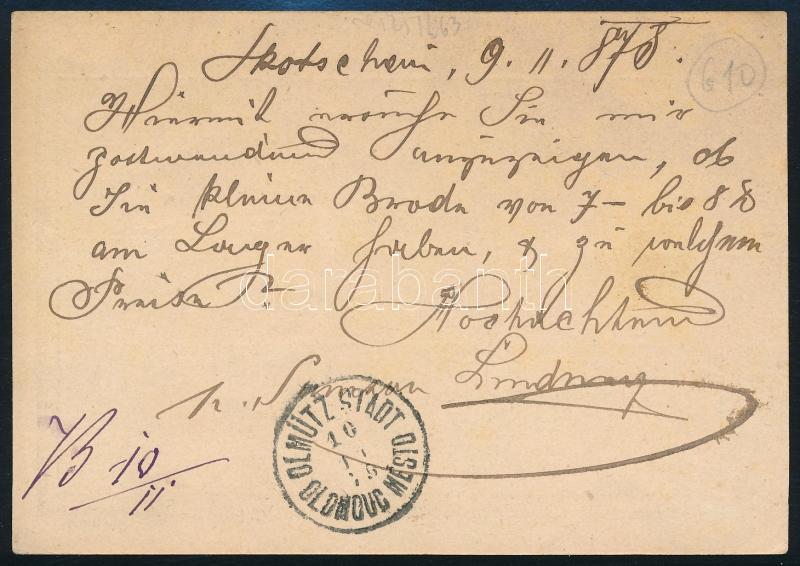 Skotschau, 9. 11. 878.
610
Hiermit ersuche Sie mir
postwendend anzuzeigen, ob
Sie kleine Brode von 7 – bis 8 ℔
am Lager haben, & zu welchem
Preise?
Hochachtend
darabanth
OLMÜTZ STADT
10
11
OLOMOUC MĚSTO
B 10
11